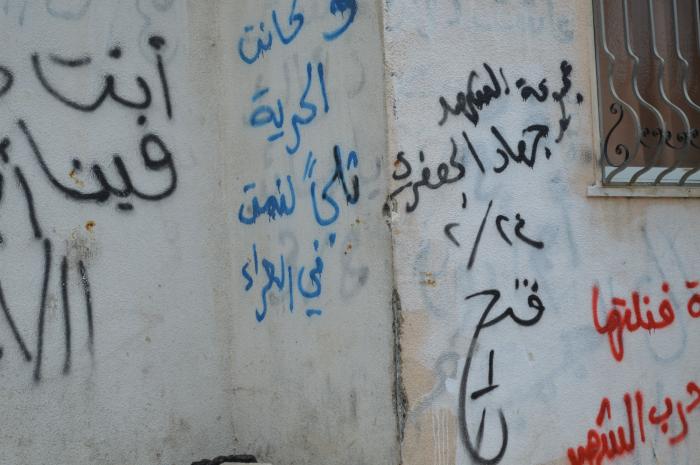 أنت
فينا
و كانت
الحرية
ثلجاً لنمت
في العراء
مجموعة الشهيد
جهاد الجعفري
٢/٢٤
فتح
فنلتها
درب الشهيد